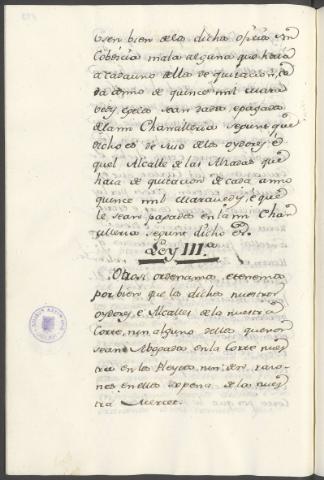 usen bien de los dichos oficios sin
Cobdicia mala alguna que haia
a cada uno dellos de quitacion, ca
da año de quince mil mara
vedis, e que les sean dados e pagados
de la mi Chancilleria segunt que
dicho es de suso de los oydores, é
quel Alcalle de las Alzadas que
haia de quitacion de cada anno
quince mil maravedis, é que
le sean pagados en la mi Chan
cilleria segunt dicho es.
Ley III.ª
Otrosi ordenamos, e tenemos
por bien que los dichos nuestros
oydores, e Alcalles de la nuestra
Corte, nin alguno dellos que non
sean Abogados en la Corte nues
tra en los Pleytos nin den razo-
nes en ellos so pena de la nues
tra Merced.